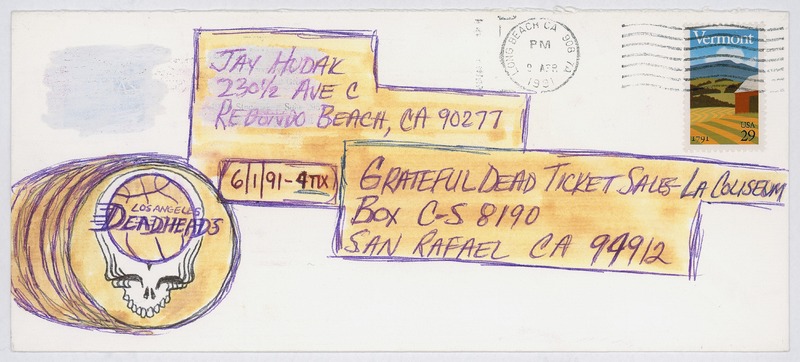 JAY HUDAK
230½ AVE C
REDONDO BEACH, CA 90277
LONG BEACH CA 908
PM
APR
1991
Vermont
1791
USA
29
6/1/91-4TIX
GRATEFUL DEAD TICKET SALES-LA COLISEUM
BOX C-S 8190
SAN RAFAEL CA 94912
LOS ANGELES
DEADHEADS